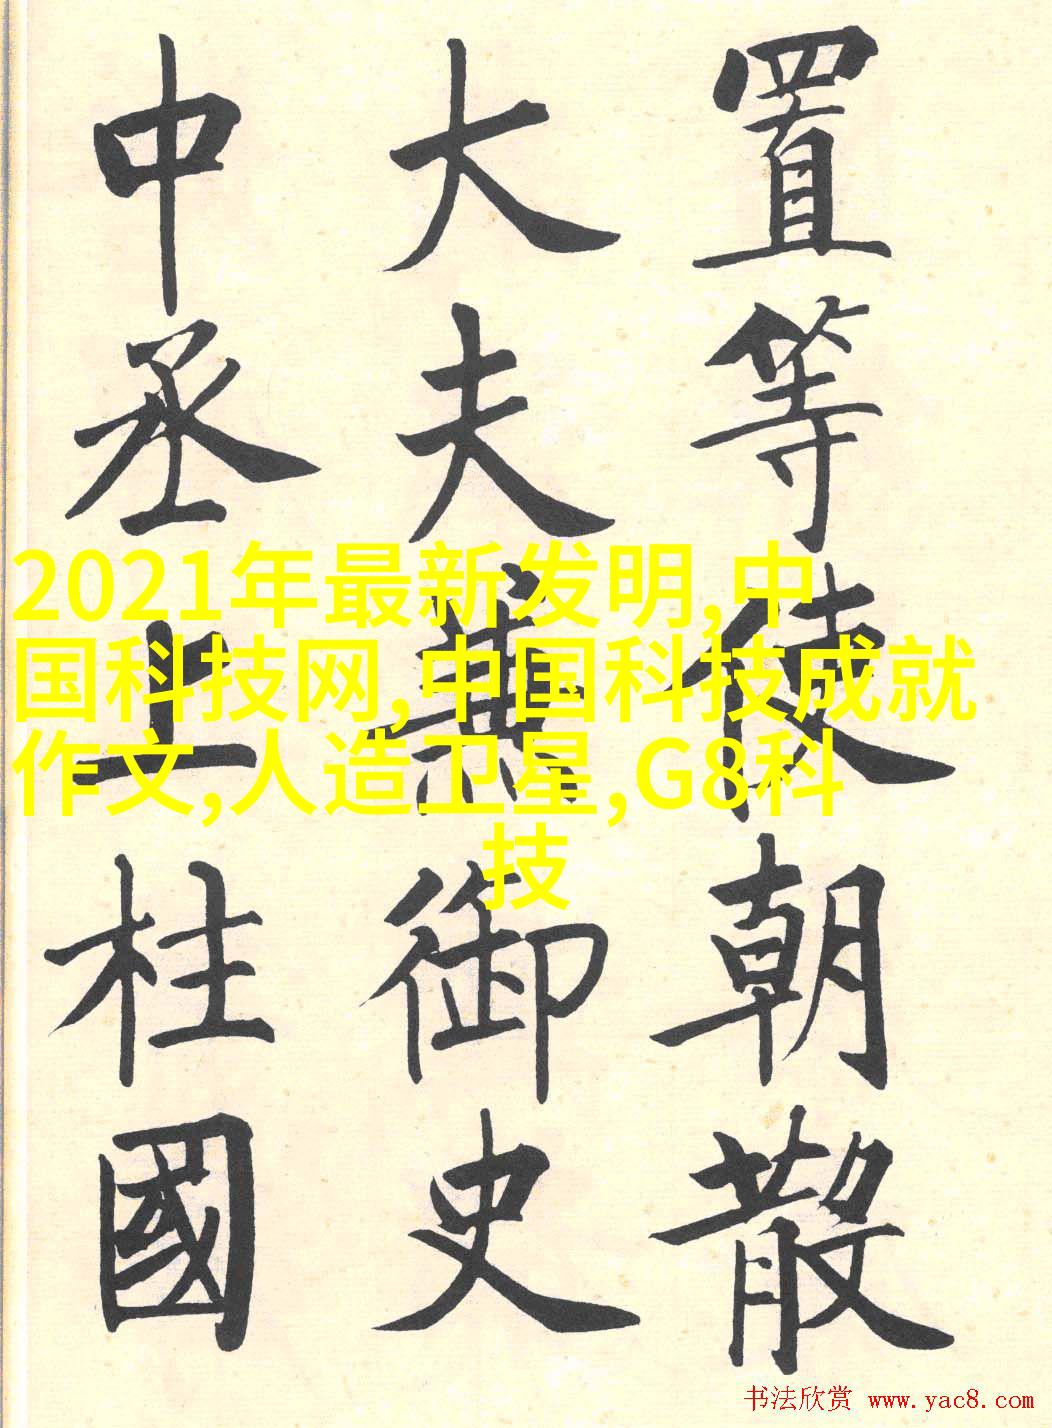 置等使朝散
大夫兼御史
中丞上柱國
2021年最新发明,中
国科技网,中国科技成就
作文,人造卫星,G8科
技
书法欣赏 www.yac8.com